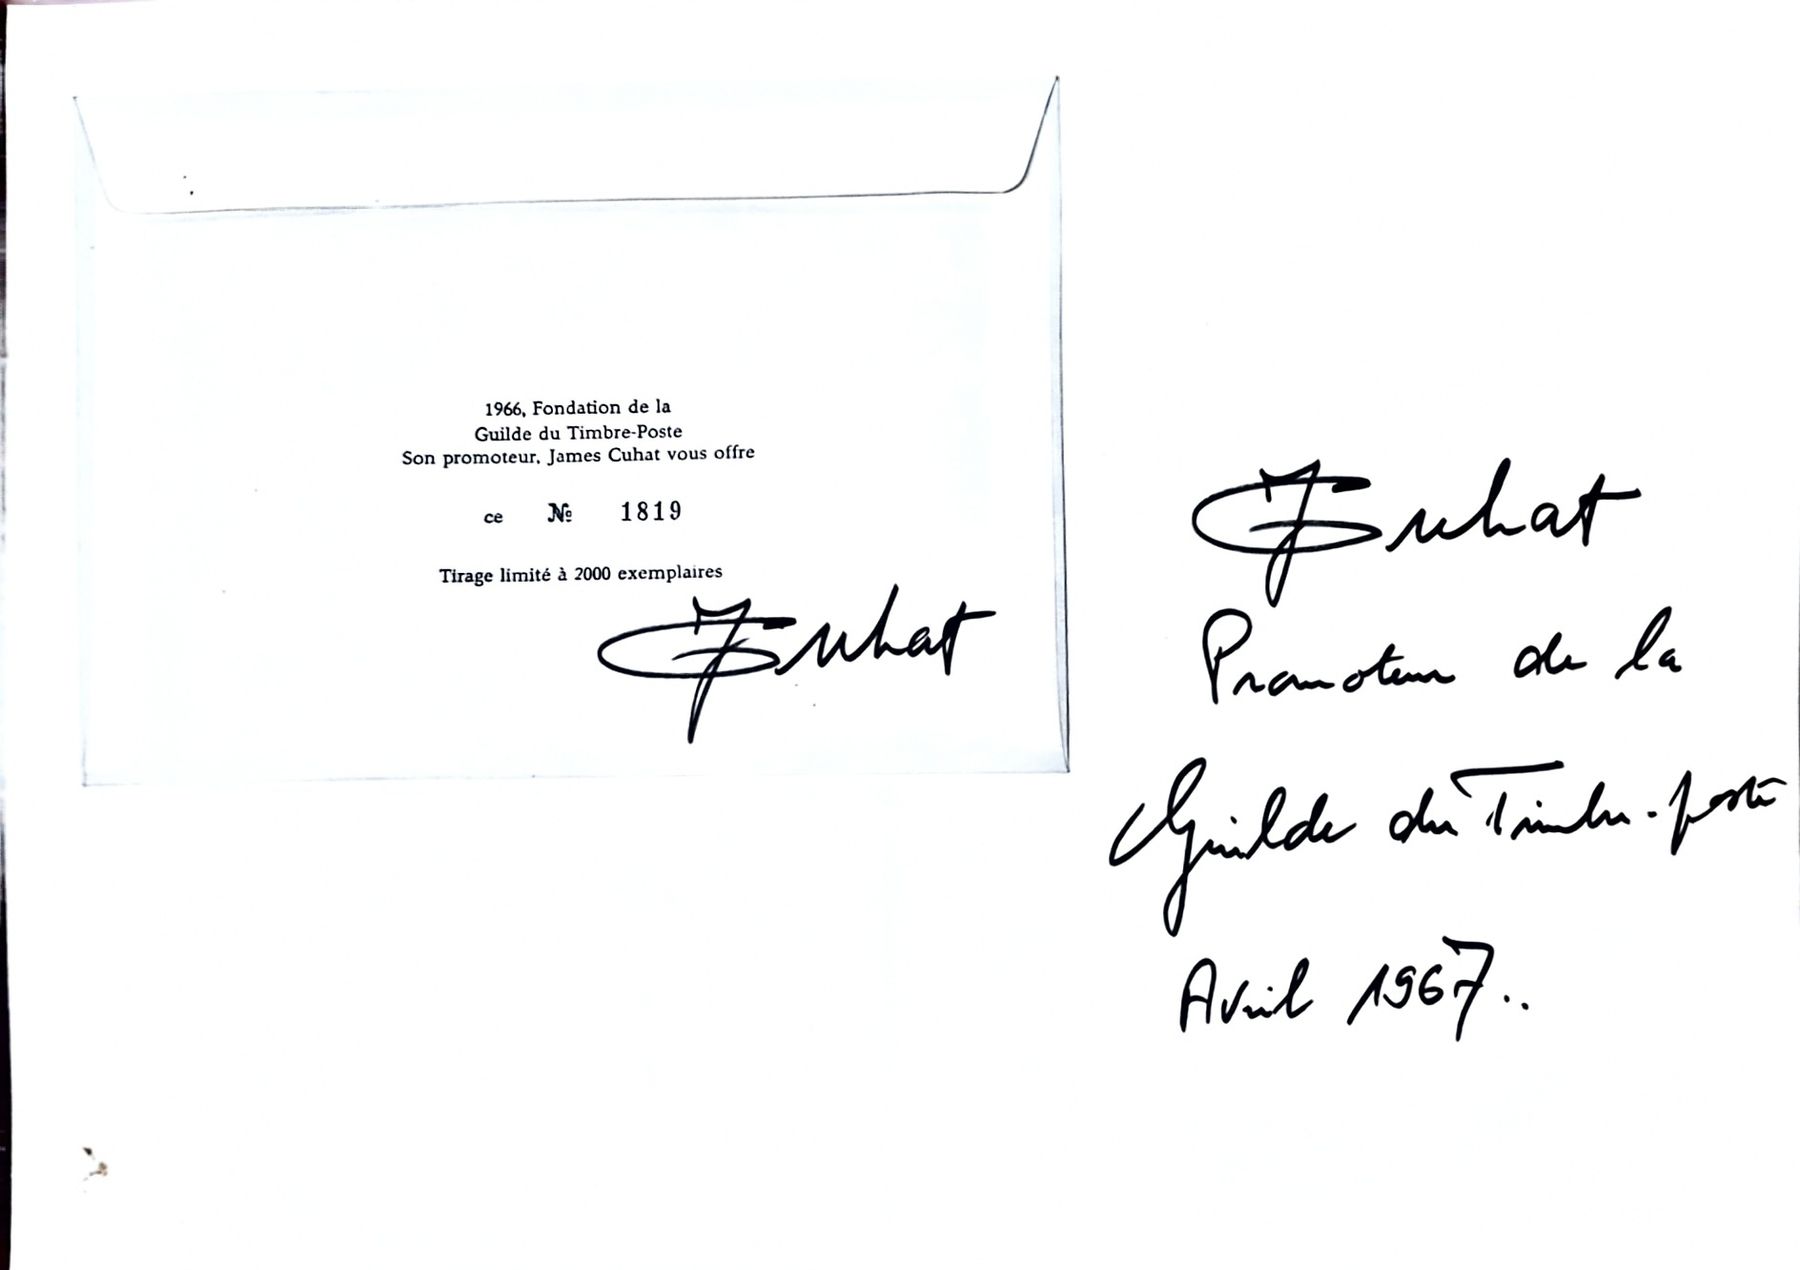 1966, Fondation de la
Guilde du Timbre-Poste
Son promoteur, James Cuhat vous offre
ce № 1819
Tirage limité à 2000 exemplaires
JCuhat
JCuhat
Promoteur de la
Guilde du Timbre-poste
Avril 1967..